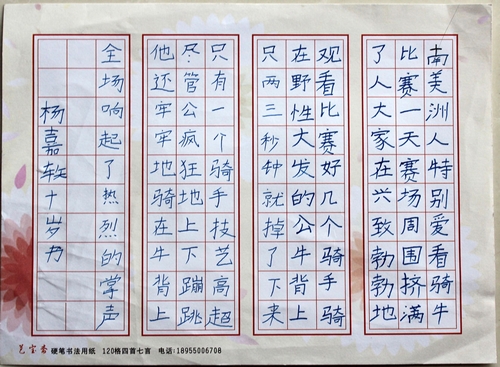 南美洲人特别爱看骑牛
比赛一天赛场周围挤满
了人大家在兴致勃勃地
观看比赛好几个骑手骑
在野性大发的公牛背上
只两三秒钟就掉了下来
只有一个骑手技艺高超
尽管公疯狂地上下蹦跳
他还牢牢地骑在牛背上
全场响起了热烈的掌声
杨嘉轶十岁
硬笔书法用纸 120格四首七言 电话:18955006708